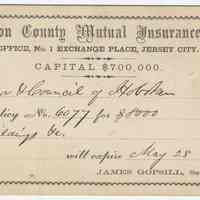 on County Mutual Insurance
OFFICE, No. 1 EXCHANGE PLACE, JERSEY CITY.
CAPITAL $700,000.
& Council of Hoboken
licy No. 6077 for $8000
ldings &c.
will expire May 28
JAMES GOPSILL, Se